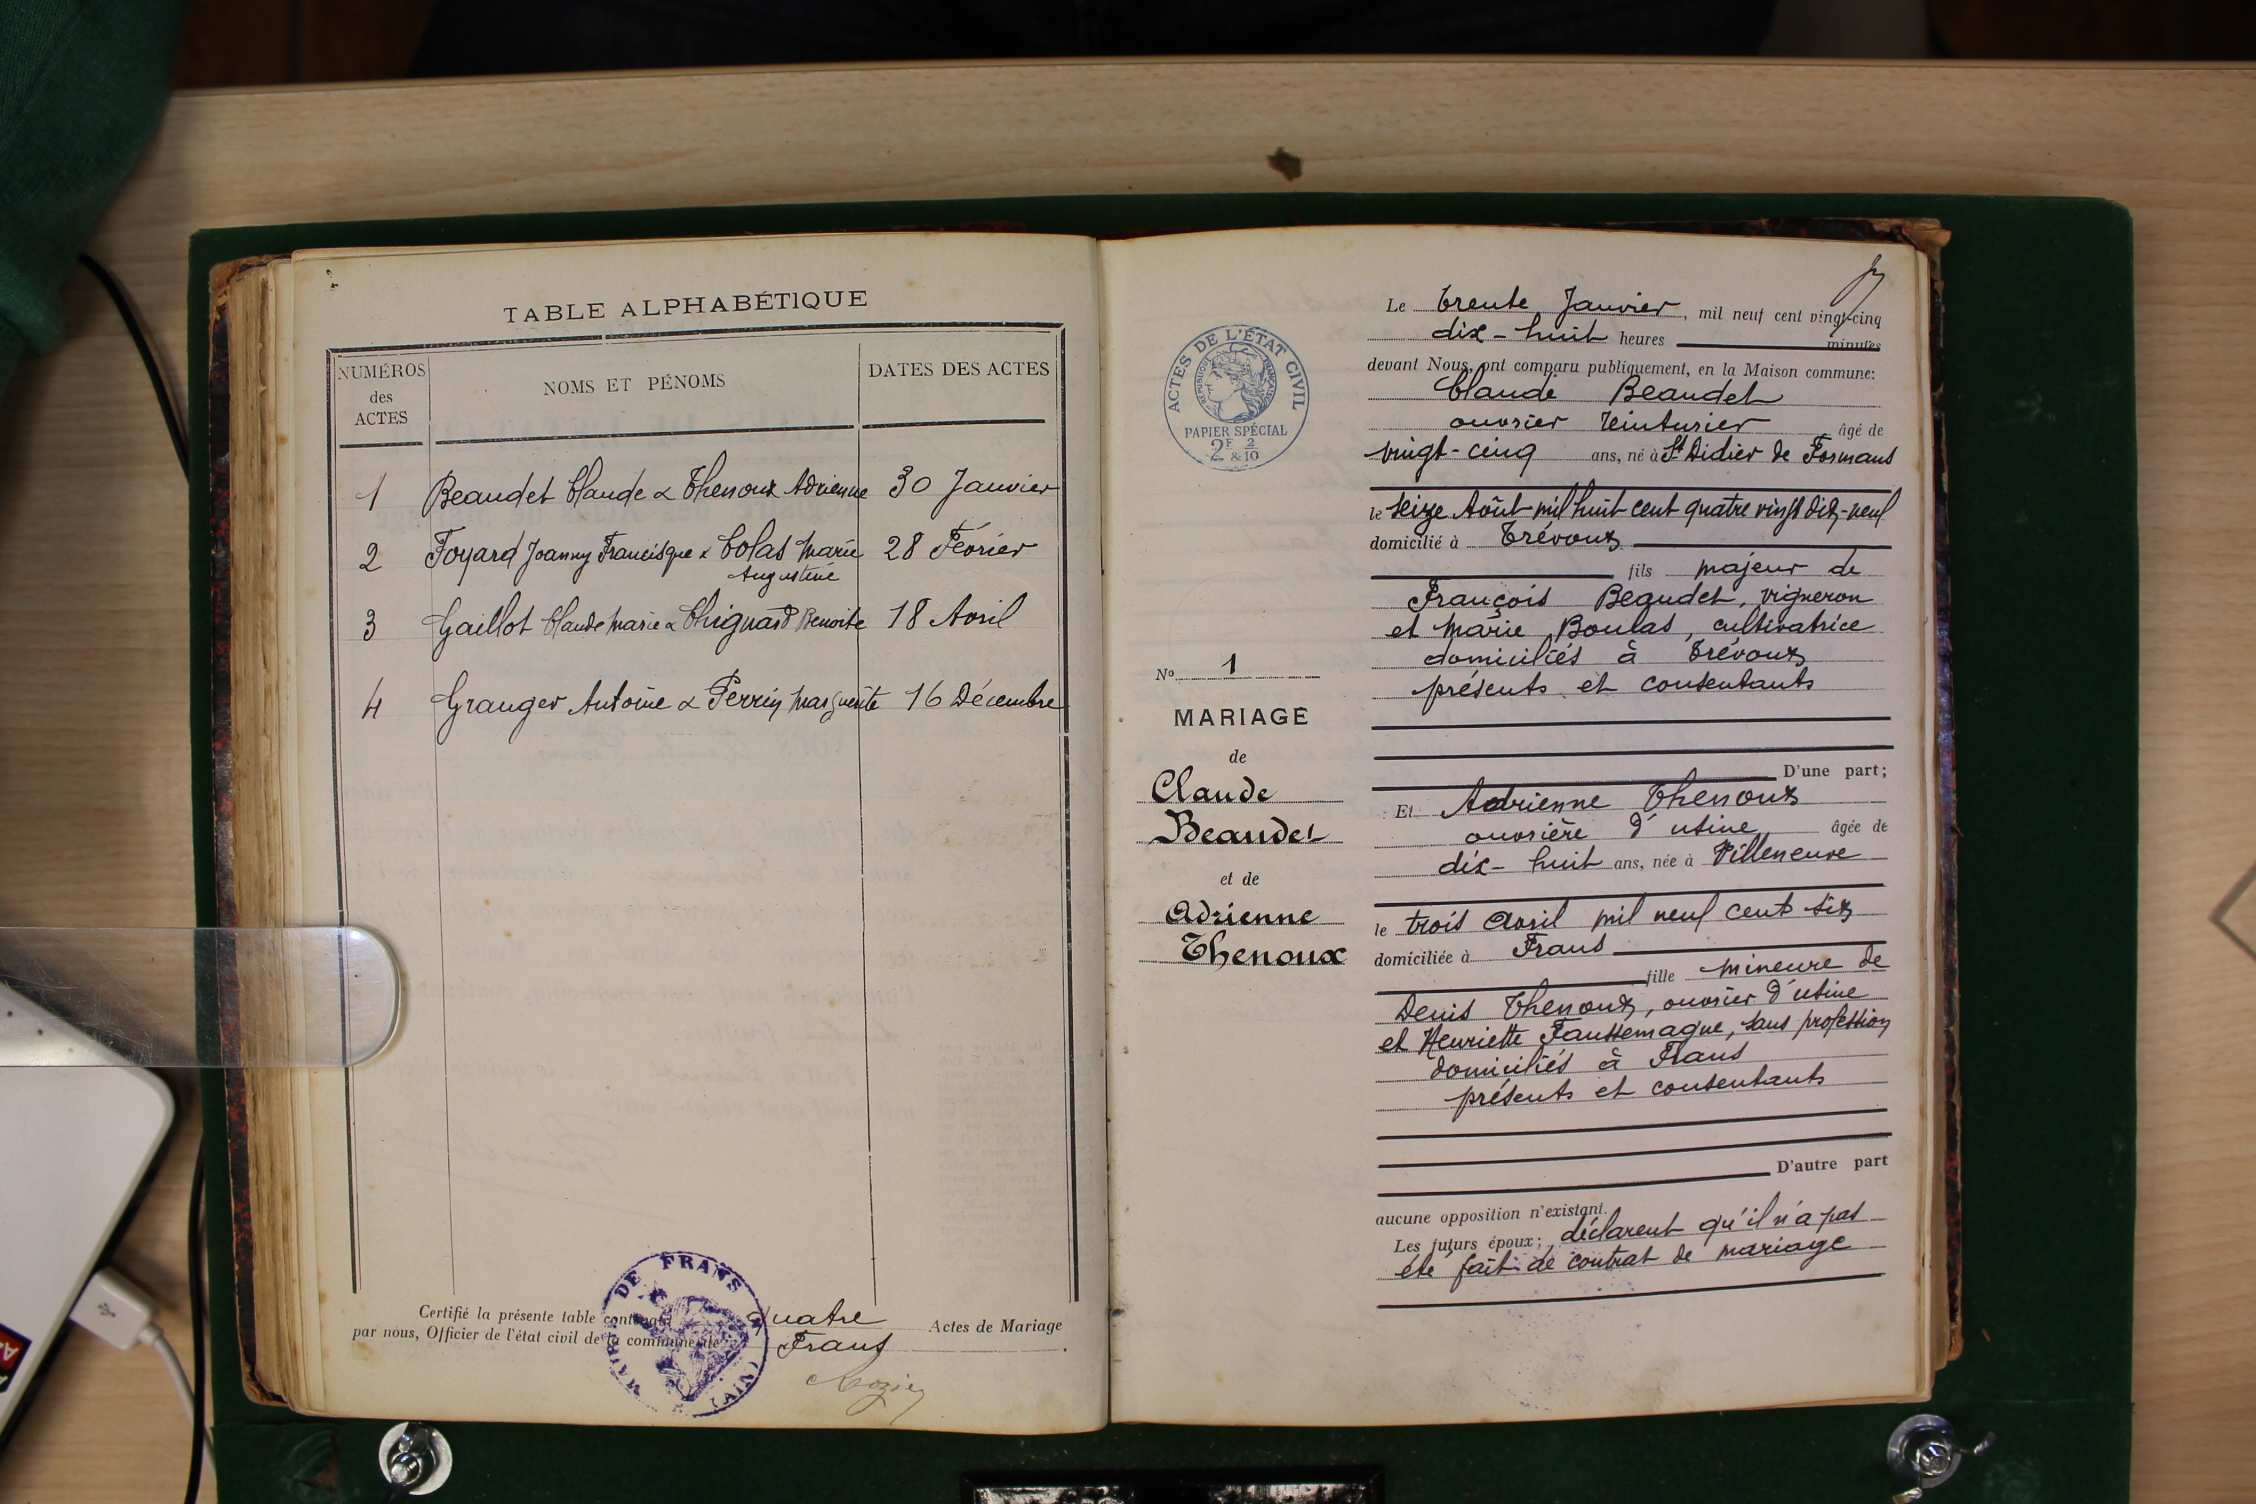 TABLE ALPHABÉTIQUE
NUMÉROS
des
ACTES
NOMS ET PÉNOMS
DATES DES ACTES
1 Beaudet Claude & Thenoux Adrienne 30 Janvier
2 Foyard Joanny Francisque & Colas Marie 28 Février
Augustine
3 Gaillot Claude Marie & Chignard Benoite 18 Avril
4 Granger Antoine & Perrin Marguerite 16 Décembre
Certifié la présente table contenant quatre Actes de Mariage
par nous, Officier de l'état civil de la commune de Frans .
MAIRIE DE FRANS (AIN)
ACTES DE L'ÉTAT CIVIL
RÉPUBLIQUE FRANÇAISE
PAPIER SPÉCIAL
2F 2
& 10
No 1
MARIAGE
de
Claude
Beaudet
et de
Adrienne
Thenoux
Le trente Janvier, mil neuf cent vingt-cinq
dix-huit heures minutes
devant Nous, ont comparu publiquement, en la Maison commune:
Claude Beaudet
ouvrier teinturier âgé de
vingt-cinq ans, né à St Didier de Formans
le seize Août mil huit cent quatre vingt dix-neuf
domicilié à Trévoux
fils majeur de
François Beaudet, vigneron
et Marie Boulas, cultivatrice
domiciliés à Trévoux
présents et consentants
D'une part;
Et Adrienne Thenoux
ouvrière d'usine âgée de
dix-huit ans, née à Villeneuve
le trois Avril mil neuf cent six
domiciliée à Frans
fille mineure de
Denis Thenoux, ouvrier d'usine
et Henriette Faussemagne, sans profession
domiciliés à Frans
présents et consentants
D'autre part
aucune opposition n'existant.
Les futurs époux; déclarent qu'il n'a pas
été fait de contrat de mariage